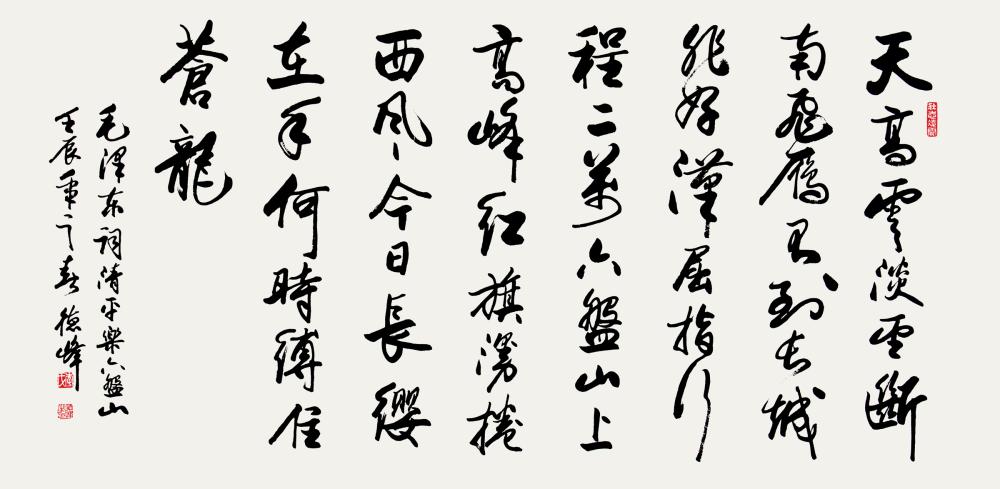 天高雲淡望斷
南飛雁不到長城
非好漢屈指行
程二萬六盤山上
高峰紅旗漫捲
西風今日長纓
在手何時縛住
蒼龍
毛澤東詞清平樂六盤山
壬辰年之春德峰